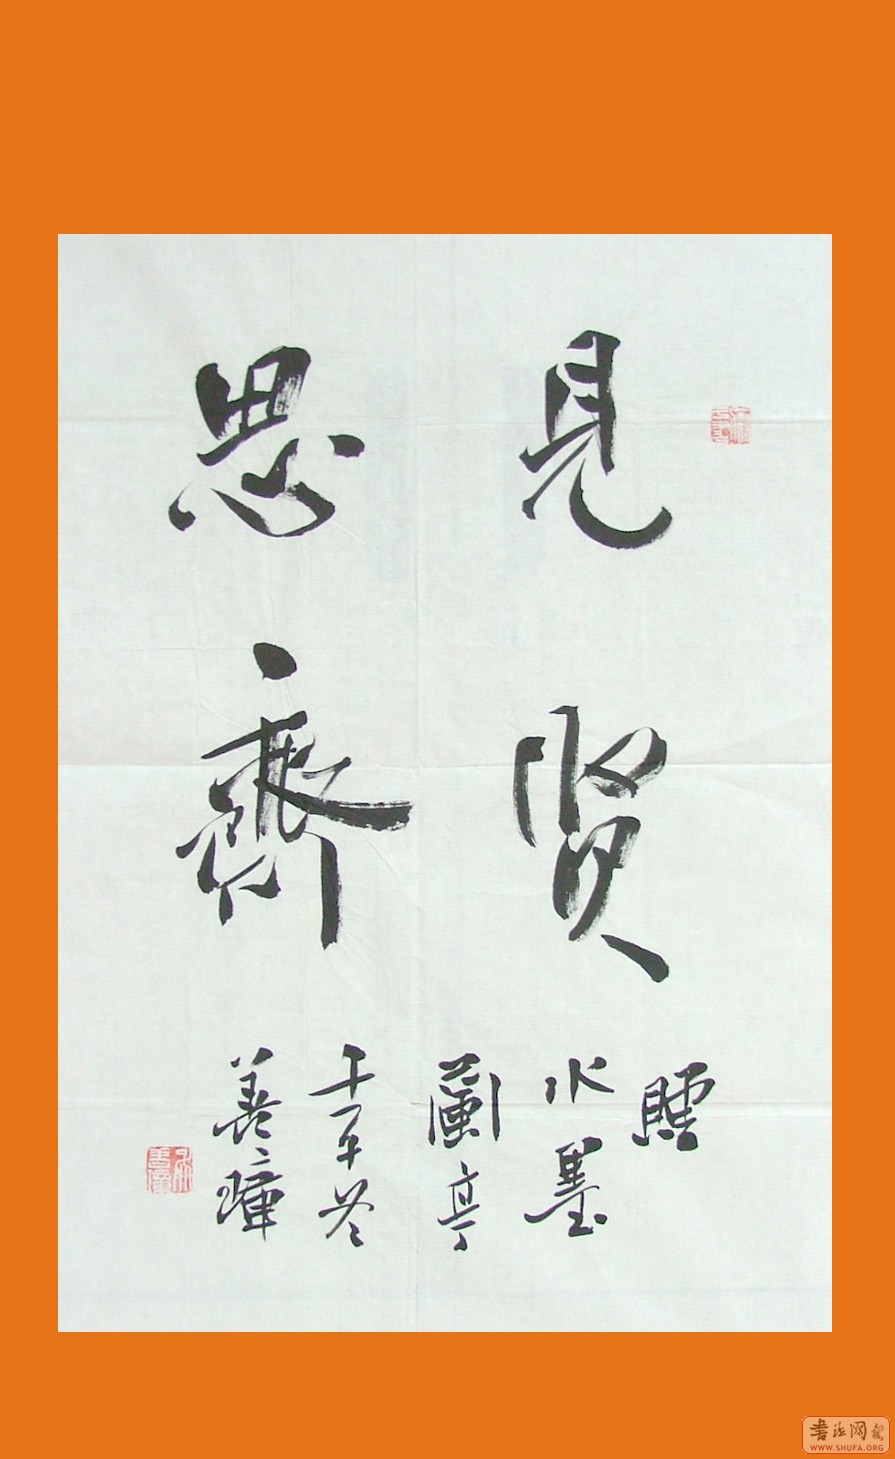 見賢
思齊
水墨
蘭亭
冬
善璋
書法网
WWW.SHUFA.ORG